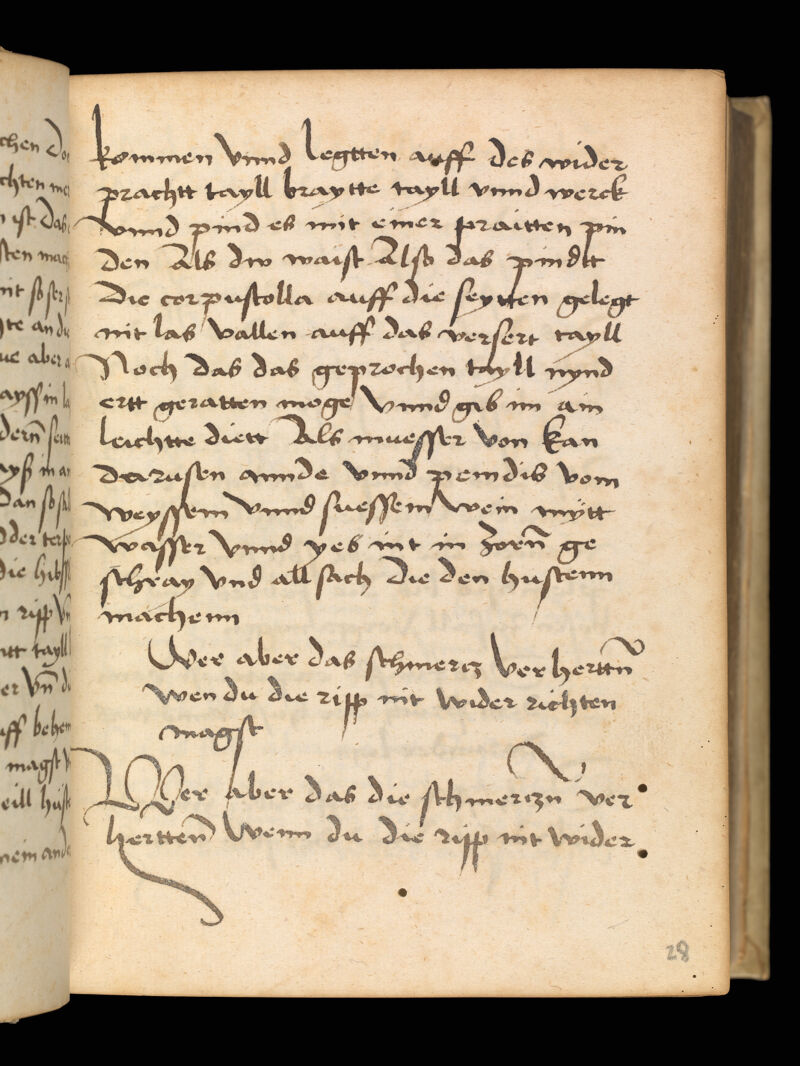 kommen vnnd legtten auff des wider
prachtt tayll braytte tayll vnnd werck
vnnd pind es mit einer praitten pin
den Als dw waist Also das pindtt
die corpustolla auff die seytten gelegt
nit las vallen auff das versert tayll
Noch das das geprochen tayll nynd
ertt geratten moge vnnd gib im ain
leichtte diett Als muesser von kan
darusen annde vnnd pemdis vom
weyssem vnnd suessem wein mÿtt
wasser vnnd yeb nit in zorn̄ ge
schray vnd all sach die den hustenn
machenn
Wer aber das schmercz verherttn̄
wen du die ripp nit wider richten
magst
Wer aber das die schmerczn ver
herttenn̄ Wenn du die ripp nit wider
28
chen
chten
ist das
sten
nit so
te an
ue aber
ayss in
dern̄
in an
dan so
oder
die
ripp
tayll
er vn̄
auff
magst